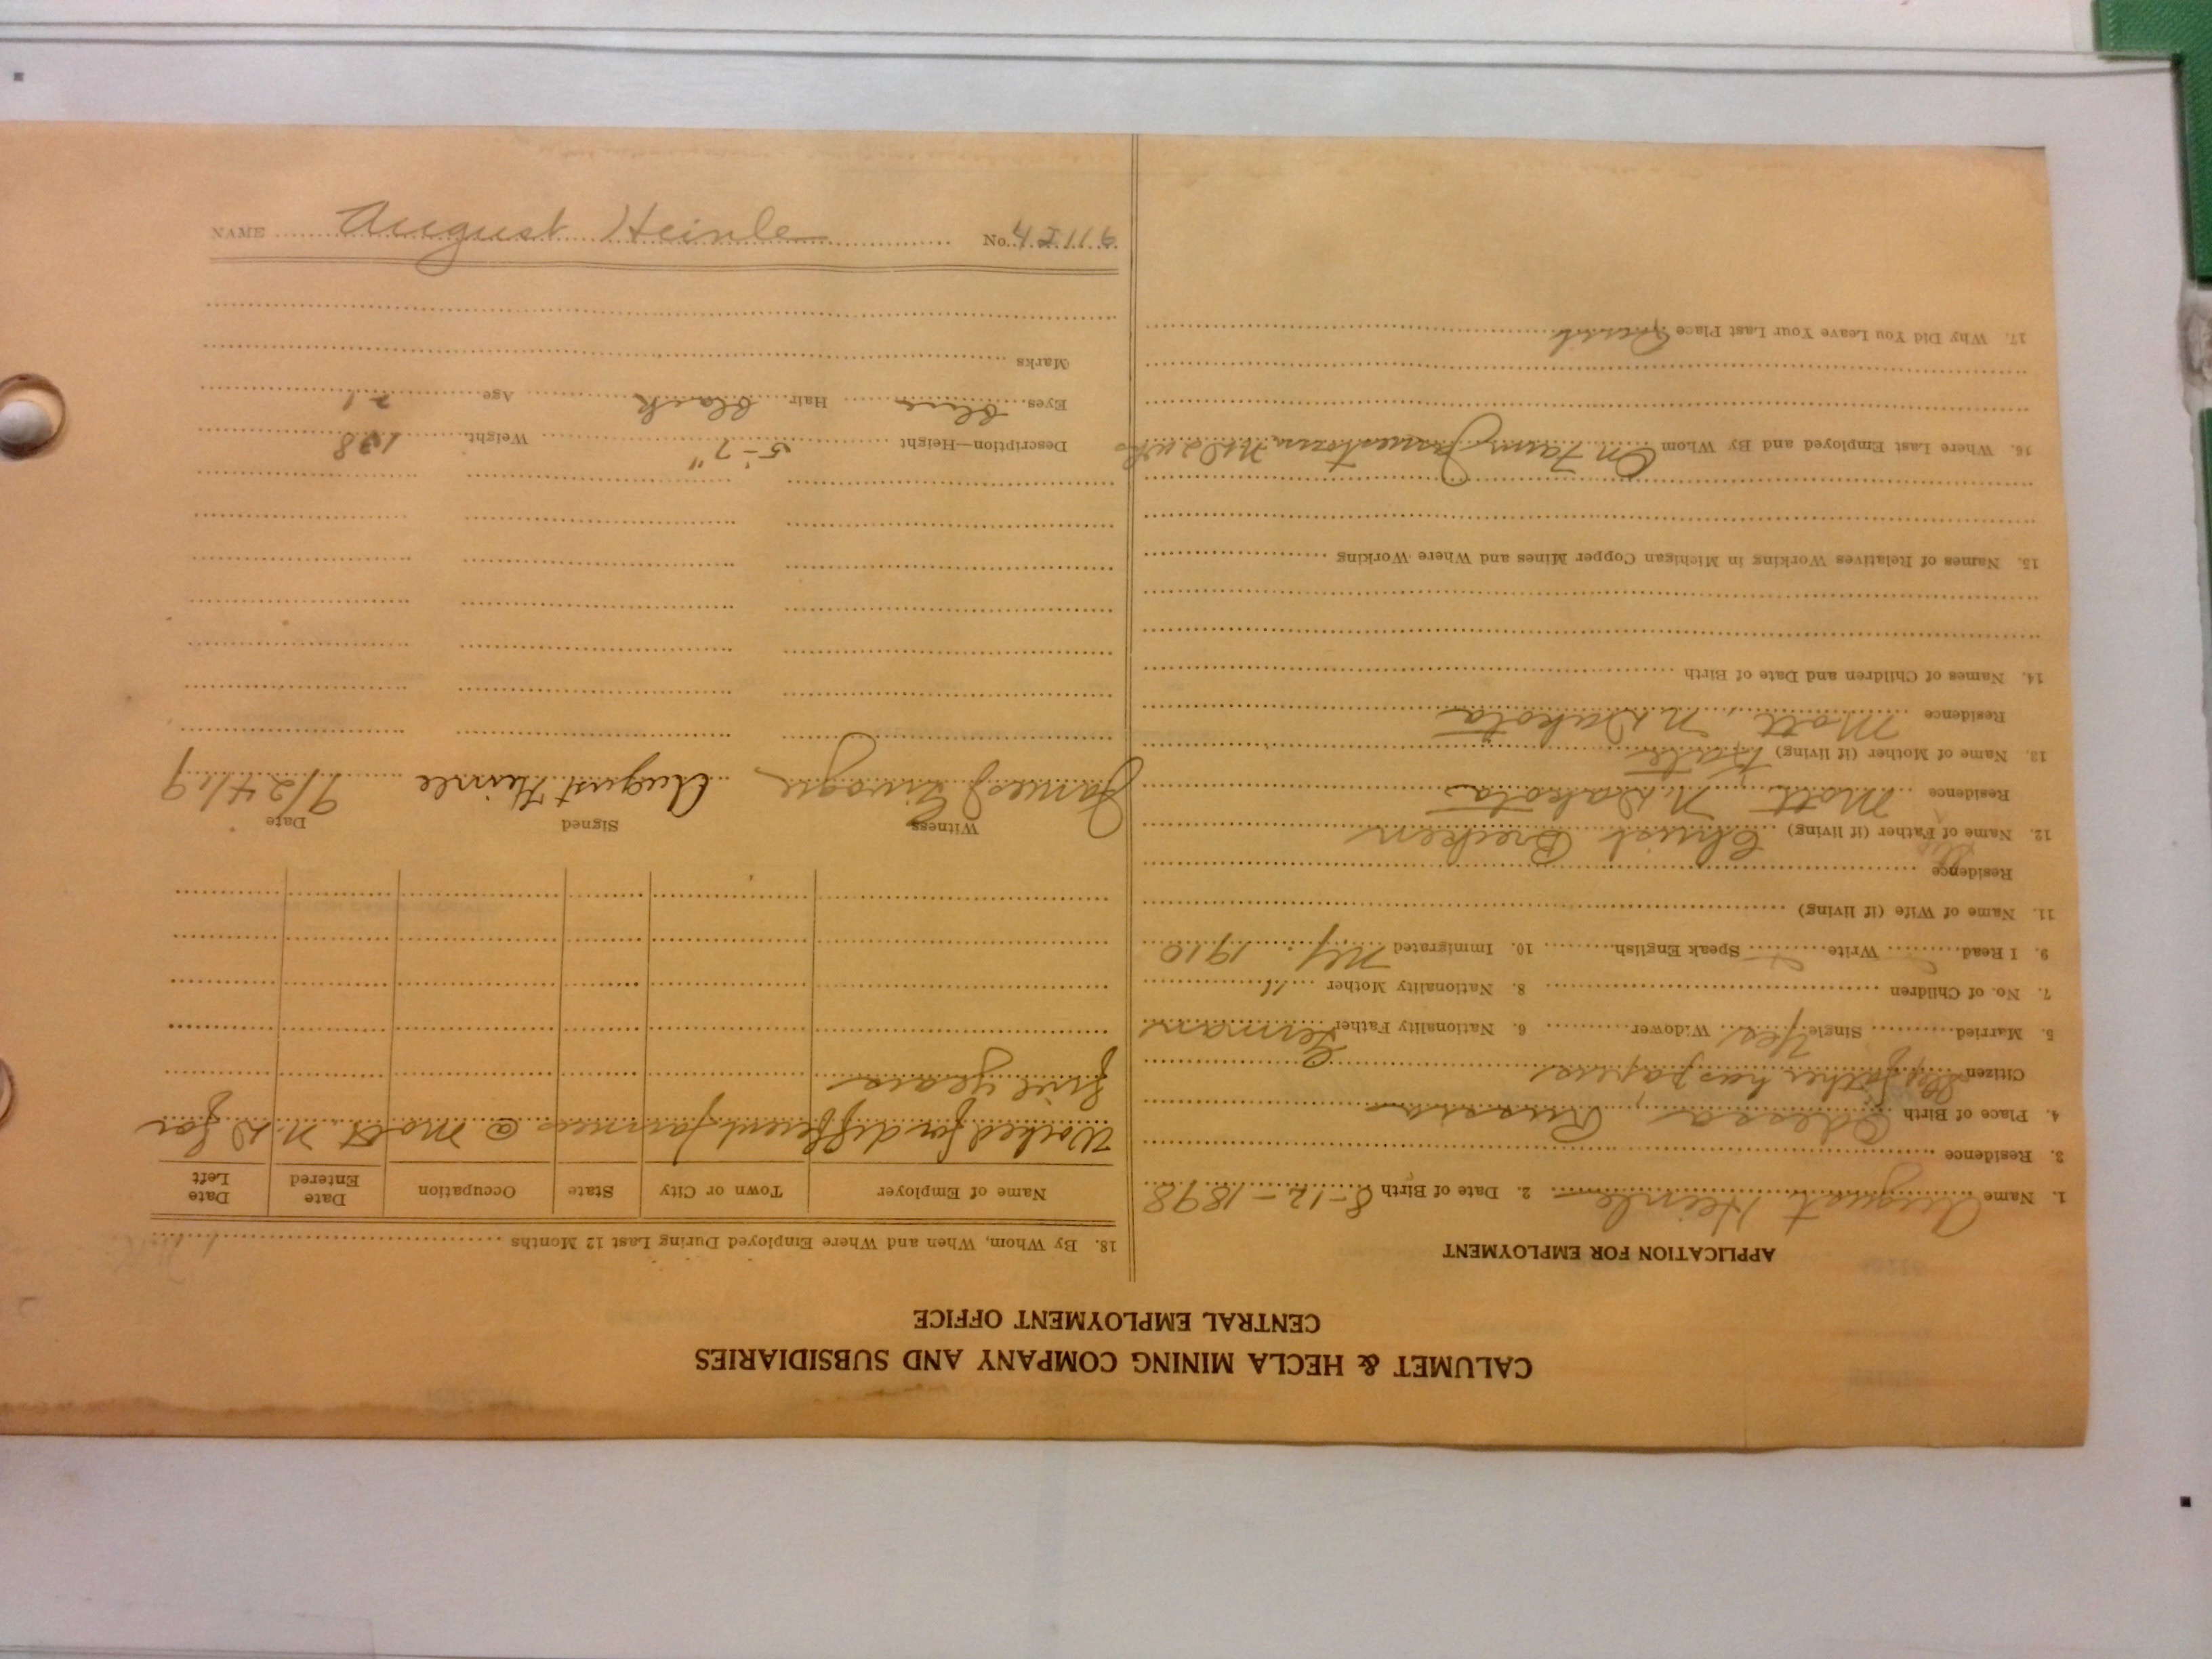 CALUMET & HECLA MINING COMPANY AND SUBSIDIARIES
CENTRAL EMPLOYMENT OFFICE
APPLICATION FOR EMPLOYMENT
1. Name August Heinle 2. Date of Birth 8-12-1898
3. Residence
4. Place of Birth Odessa, Russia
Citizen Step father has papers
5. Married Single Yes Widower 6. Nationality Father German
7. No. of Children 8. Nationality Mother "
9. I Read Write Speak English 10. Immigrated NY. 1910
11. Name of Wife (if living)
Residence
Step
12. Name of Father (if living) Christ
Residence Mott, N. Dakota
13. Name of Mother (if living) Kate
Residence Mott, N Dakota
14. Names of Children and Date of Birth
15. Names of Relatives Working in Michigan Copper Mines and Where Working
16. Where Last Employed and By Whom On Farm Jamestown N.D. 2 wks
17. Why Did You Leave Your Last Place
18. By Whom, When and Where Employed During Last 12 Months
Name of Employer Town or City State Occupation Date Entered Date Left
Worked for different farmers @ Mott N.D for
five years
Witness Signed Date
James August Heinle 9/24/19
Description—Height 5-7" Weight 138
Eyes blue Hair black Age 21
Marks
NAME August Heinle No.